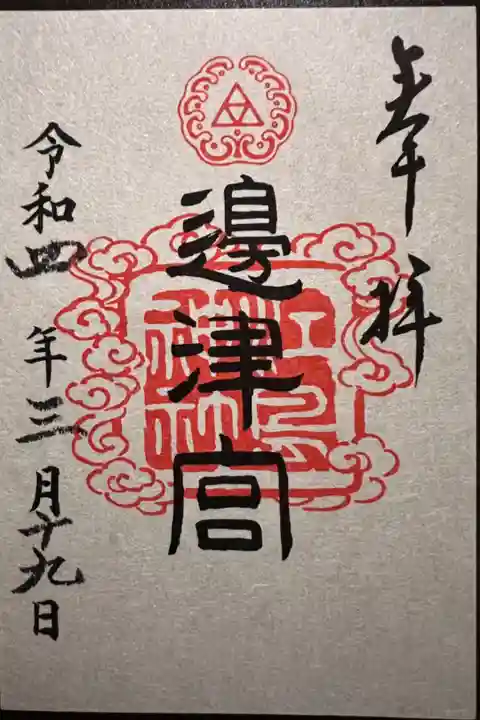 奉拝
邊津宮
令和四年三月十九日